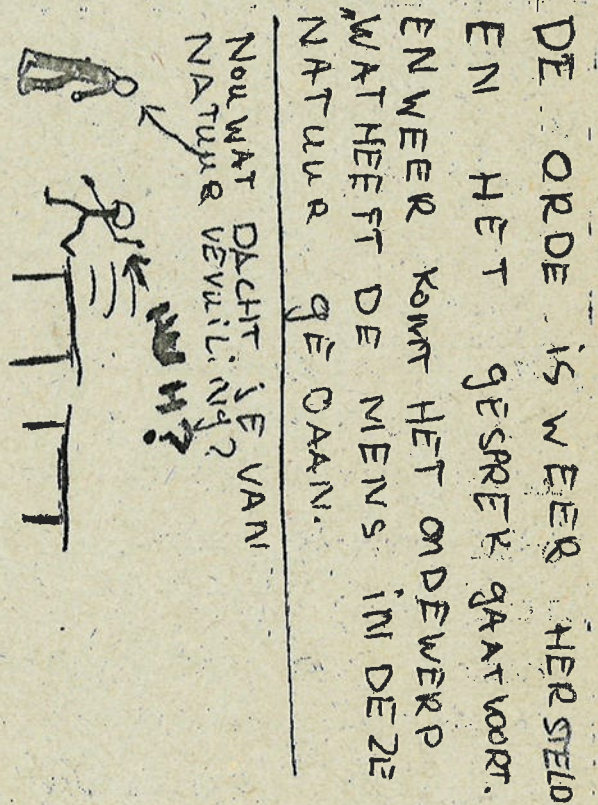 DE ORDE iS WEER HERSTELD
EN HET gESPREK gAAT VOORT.
EN WEER KOMT HET ONDEWERP
"WAT HEEFT DE MENS iN DEZE
NATUUR gEDAAN.
NOU WAT DACHT JE VAN
NATUUR VEVUiLiNg?
HUH?